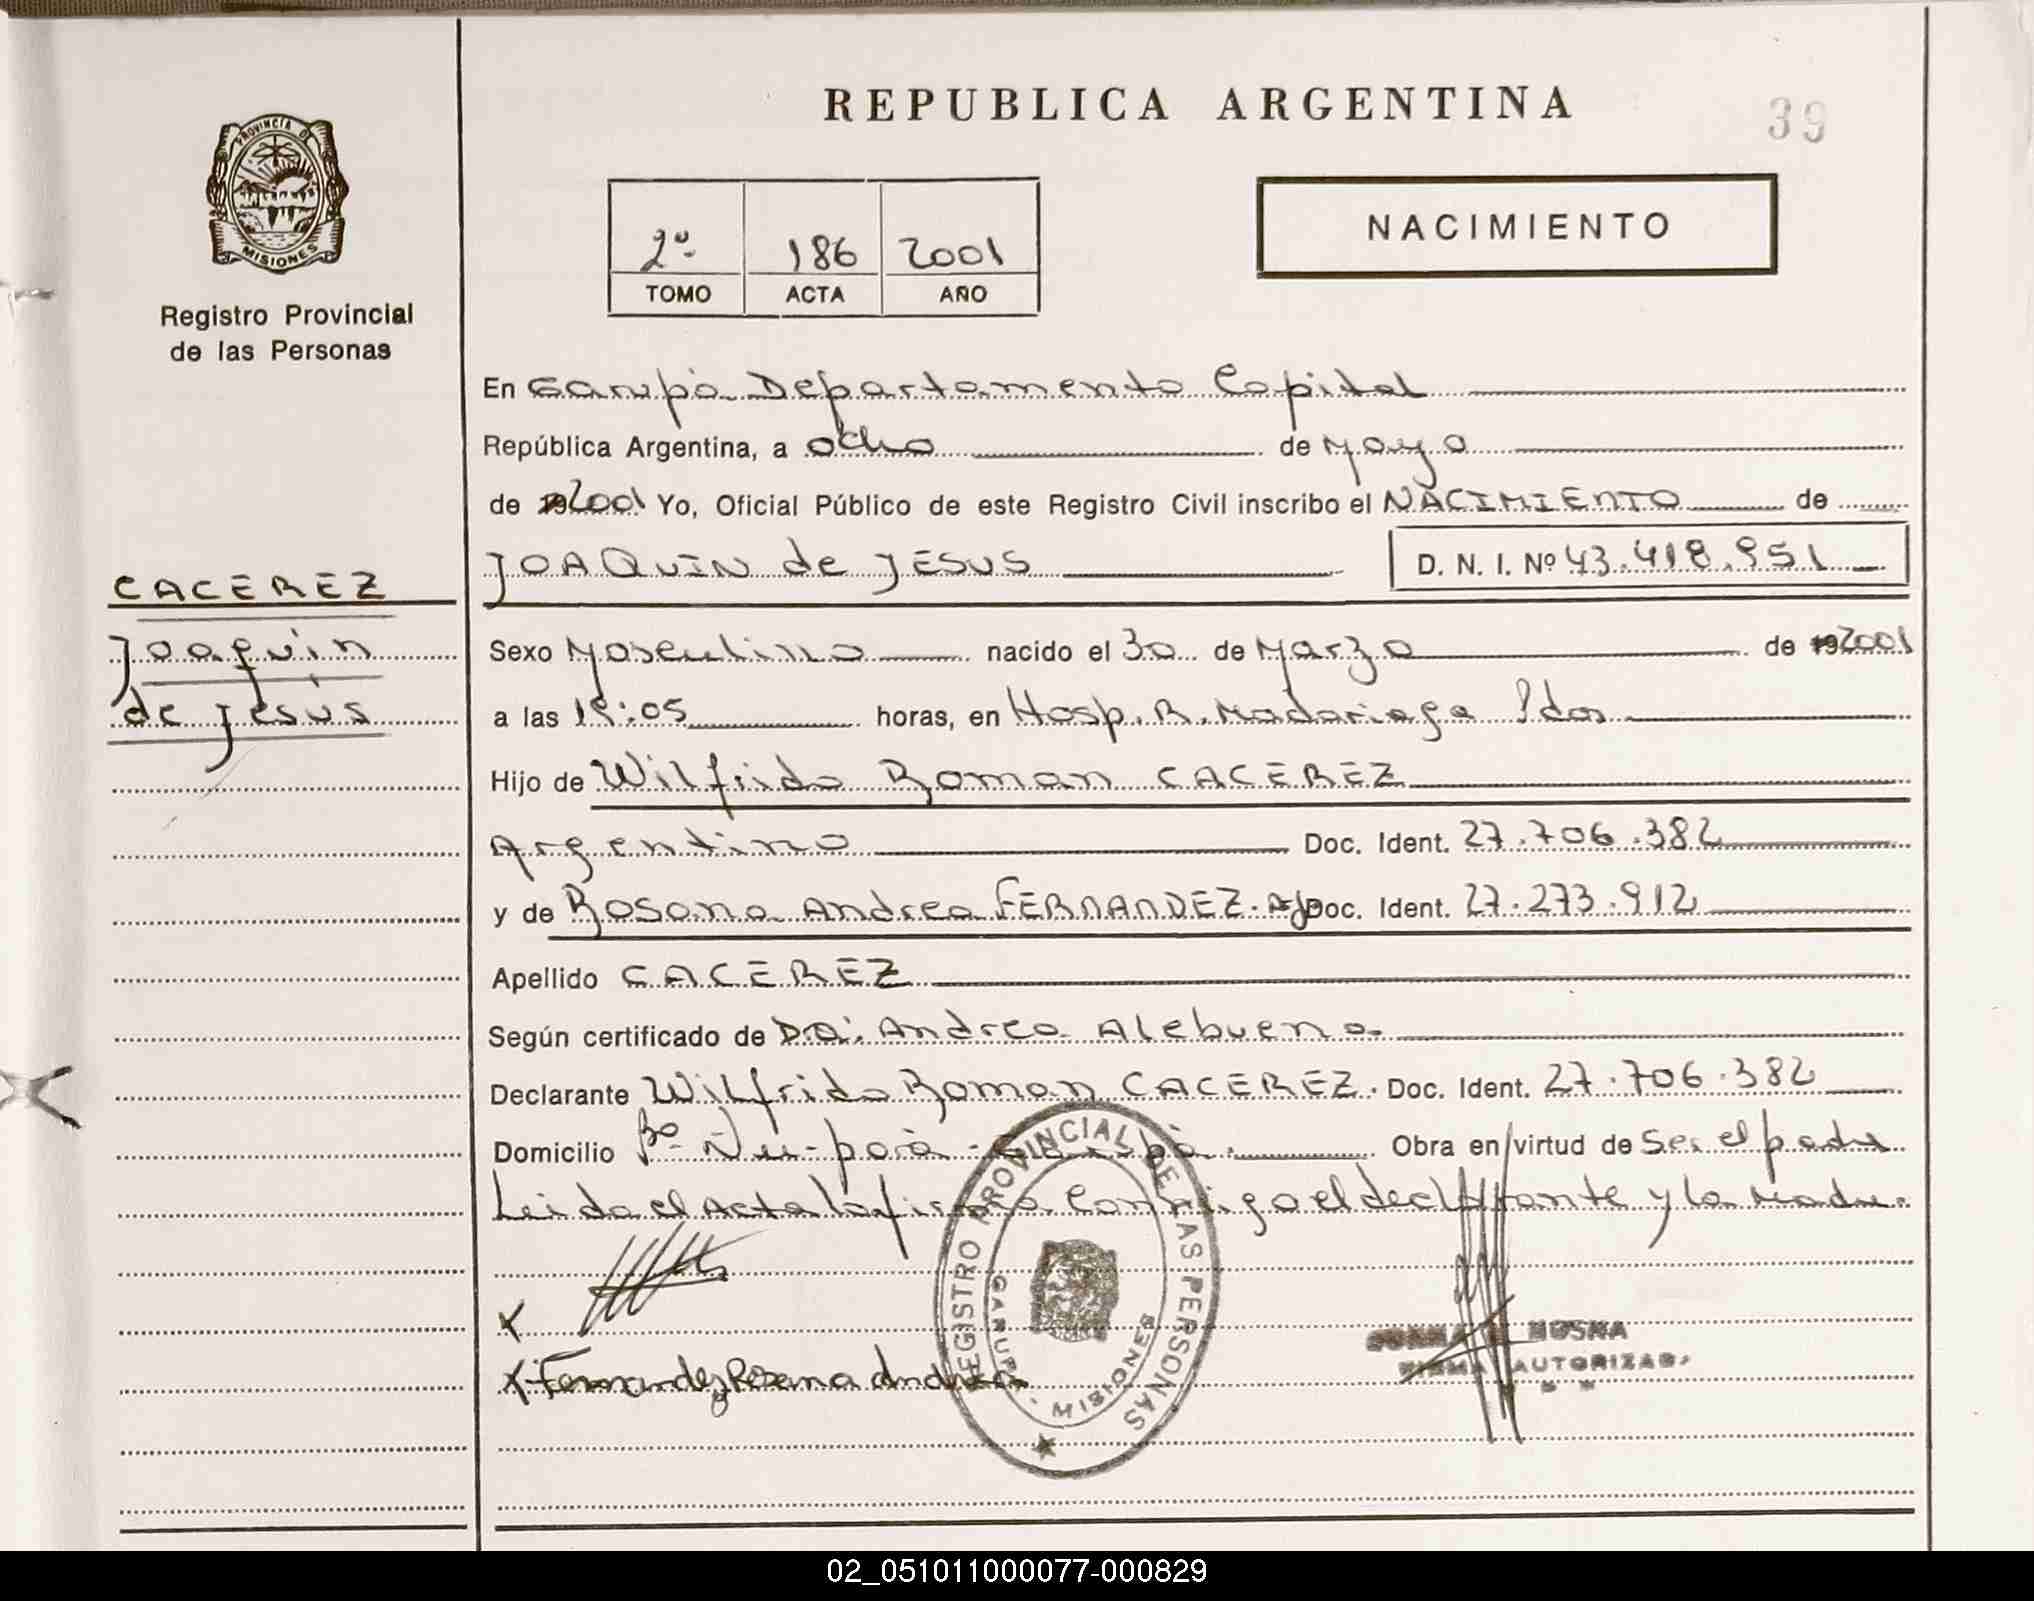 REPUBLICA ARGENTINA
39
PROVINCIA D
MISIONES
Registro Provincial
de las Personas
2º 186 2001
TOMO ACTA AÑO
NACIMIENTO
En Garupá Departamento Capital
República Argentina, a ocho de Mayo
de 2001 Yo, Oficial Público de este Registro Civil inscribo el NACIMIENTO de
JOAQUIN de JESUS D. N. I. Nº 43.418.951
CACEREZ
Joaquin
de Jesús
Sexo Masculino nacido el 30 de Marzo de 2001
a las 19:05 horas, en Hosp. R. Madariaga Pdas
Hijo de Wilfrido Roman CACEREZ
Argentino Doc. Ident. 27.706.382
y de Rosana Andrea FERNANDEZ. Doc. Ident. 27.273.912
Apellido CACEREZ
Según certificado de Dra. Andrea Alebuena
Declarante Wilfrido Roman CACEREZ. Doc. Ident. 27.706.382
Domicilio Bº Ñu-porá - Garupá. Obra en virtud de Ser el padre
Leida el Acta la firma Conmigo el declarante y la Madre.
X
X Fernandez Rosana Andrea
REGISTRO PROVINCIAL DE LAS PERSONAS
GARUPA - MISIONES
MOSNA
FIRMA AUTORIZAD
02_051011000077-000829